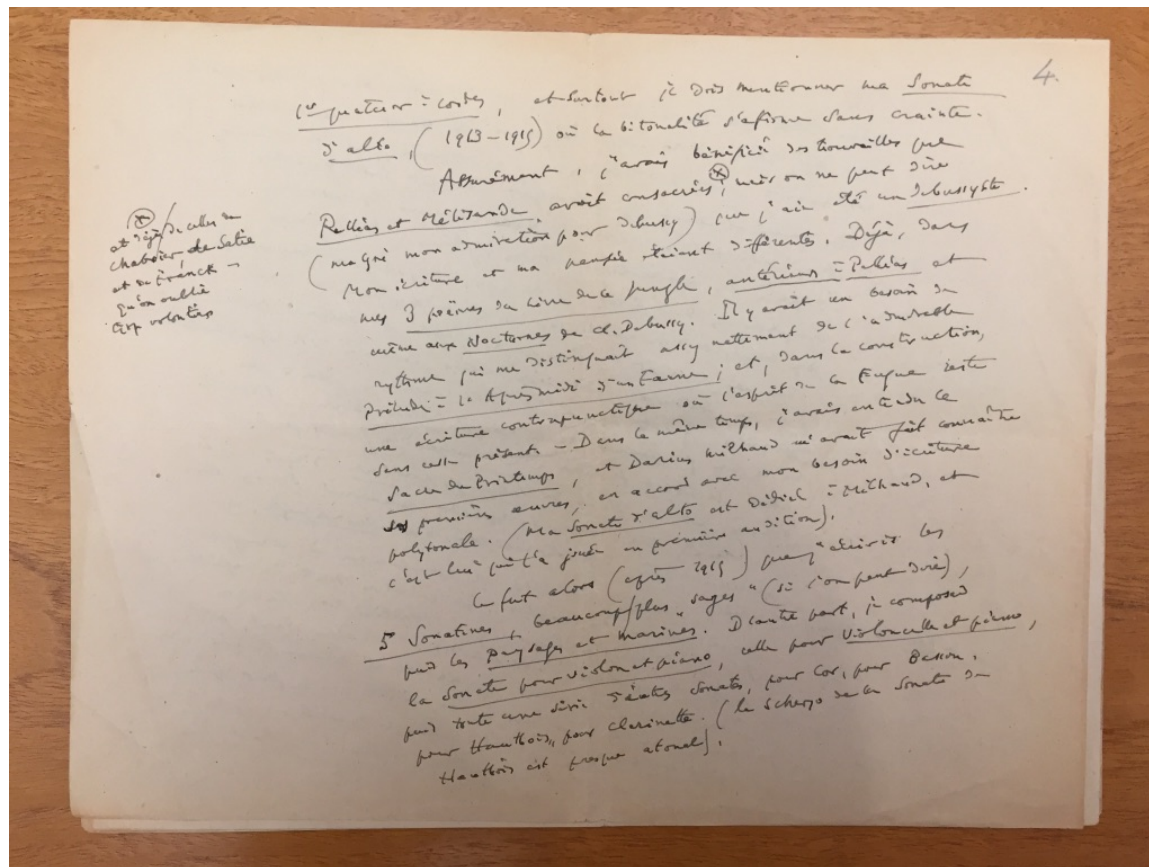 4.
1er quatuor à cordes, et surtout je dois mentionner ma Sonate
d'alto, (1913-1915) où la bitonalité s'affirme sans crainte.
Assurément, j'avais bénéficié des trouvailles que
Pelléas et Mélisande avait consacrées, mais on ne peut dire
(malgré mon admiration pour Debussy) que j'aie été un debussyste.
Mon écriture et ma pensée étaient différentes. Déjà, dans
mes 3 poèmes du Livre de la Jungle, antérieurs à Pelléas et
même aux Nocturnes de Cl. Debussy. Il y avait un besoin de
rythme qui me distinguait assez nettement de l'admirable
Prélude à l'Après midi d'un Faune; et, dans la construction,
une écriture contrapunctique où l'esprit de la Fugue reste
sans cesse présent - Dans le même temps, j'avais entendu le
Sacre du Printemps, et Darius Milhaud m'avait fait connaître
ses premières œuvres, en accord avec mon besoin d'écriture
polytonale. (Ma Sonate d'alto est dédiée à Milhaud, et
c'est lui qui l'a jouée en première audition).
Ce fut alors (après 1915) que j'écrivis les
5 Sonatines, beaucoup plus "sages" (si l'on peut dire),
puis les Paysages et marines. D'autre part, je composai
la Sonate pour violon et piano, celle pour violoncelle et piano,
puis toute une série d'autres sonates, pour Cor, pour Basson,
pour Hautbois, pour Clarinette. (le Scherzo de la Sonate de
Hautbois est presque atonal).
et déjà de celles de
Chabrier, de Satie
et de Franck -
qu'on oublie
trop volontiers